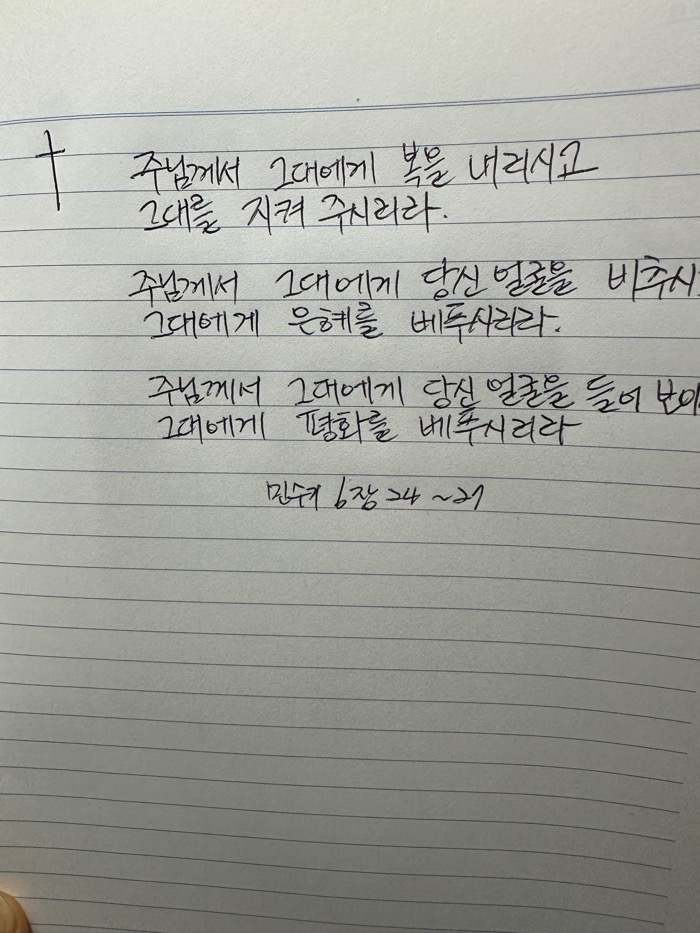 주님께서 그대에게 복을 내리시고
그대를 지켜 주시리라.
주님께서 그대에게 당신 얼굴을 비추시
그대에게 은혜를 베푸시리라.
주님께서 그대에게 당신 얼굴을 들어 보이
그대에게 평화를 베푸시리라
민수기 6장 24~27